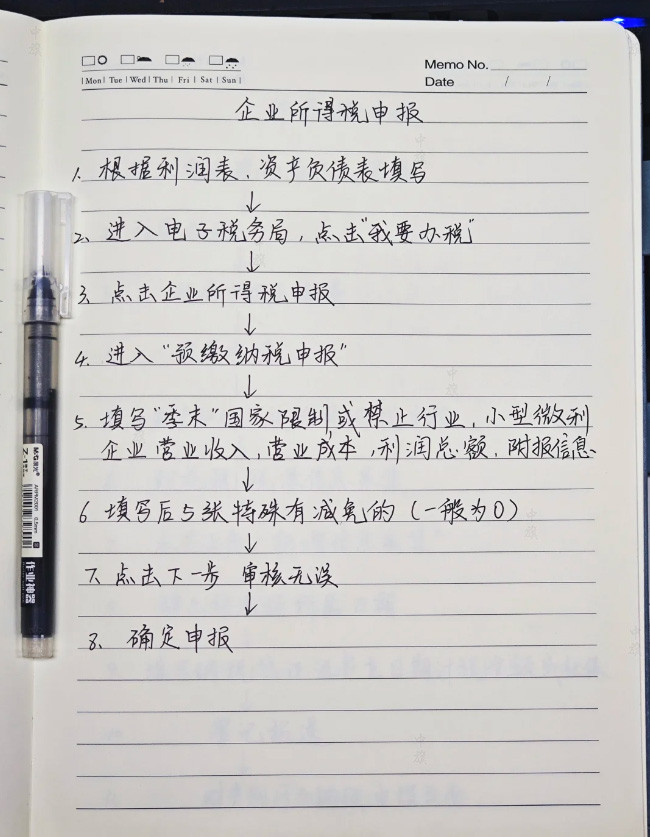 Memo No.
Mon Tue Wed Thu Fri Sat Sun
Date / /
企业所得税申报
1、根据利润表、资产负债表填写
↓
2、进入电子税务局，点击"我要办税"
↓
3、点击企业所得税申报
↓
4、进入"预缴纳税申报"
↓
5、填写"季末"国家限制或禁止行业，小型微利
企业营业收入，营业成本，利润总额，附报信息
↓
6、填写后5张特殊有减免的（一般为0）
↓
7、点击下一步 审核无误
↓
8、确定申报
M&G晨光
0.5mm
作业神器